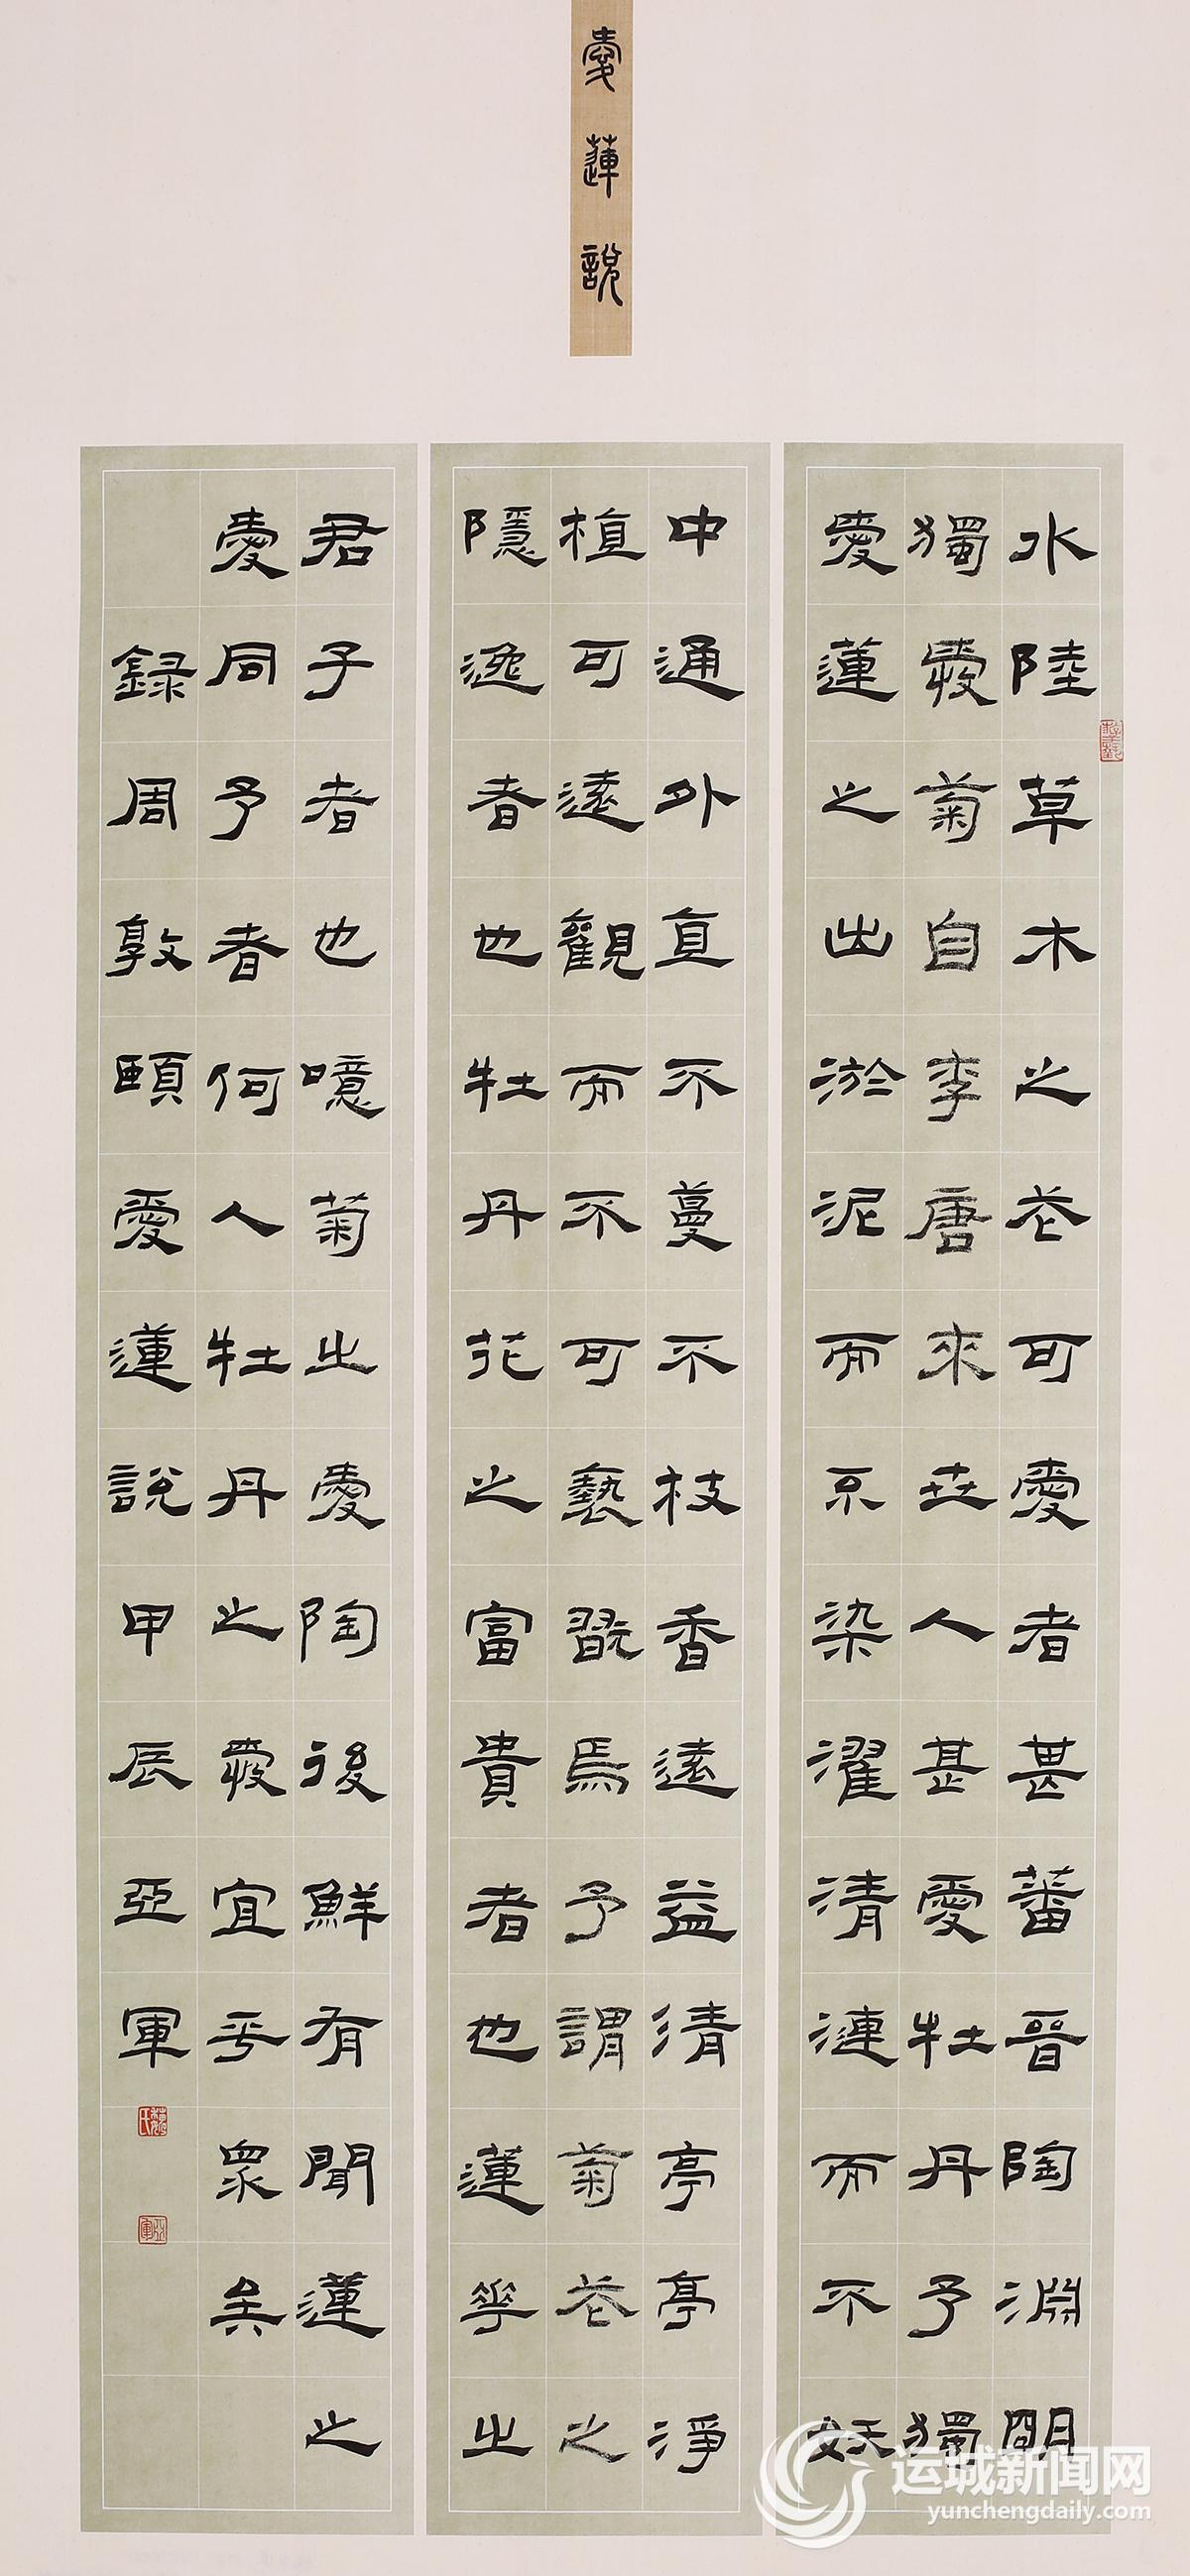 愛蓮說
水陸草木之花可愛者甚蕃晉陶淵明
獨愛菊自李唐來世人甚愛牡丹予獨
愛蓮之出淤泥而不染濯清漣而不妖
中通外直不蔓不枝香遠益清亭亭淨
植可遠觀而不可褻翫焉予謂菊花之
隱逸者也牡丹花之富貴者也蓮華之
君子者也噫菊之愛陶後鮮有聞蓮之
愛同予者何人牡丹之愛宜乎眾矣
録周敦頤愛蓮說甲辰亞軍
亞軍
运城新闻网
yunchengdaily.com